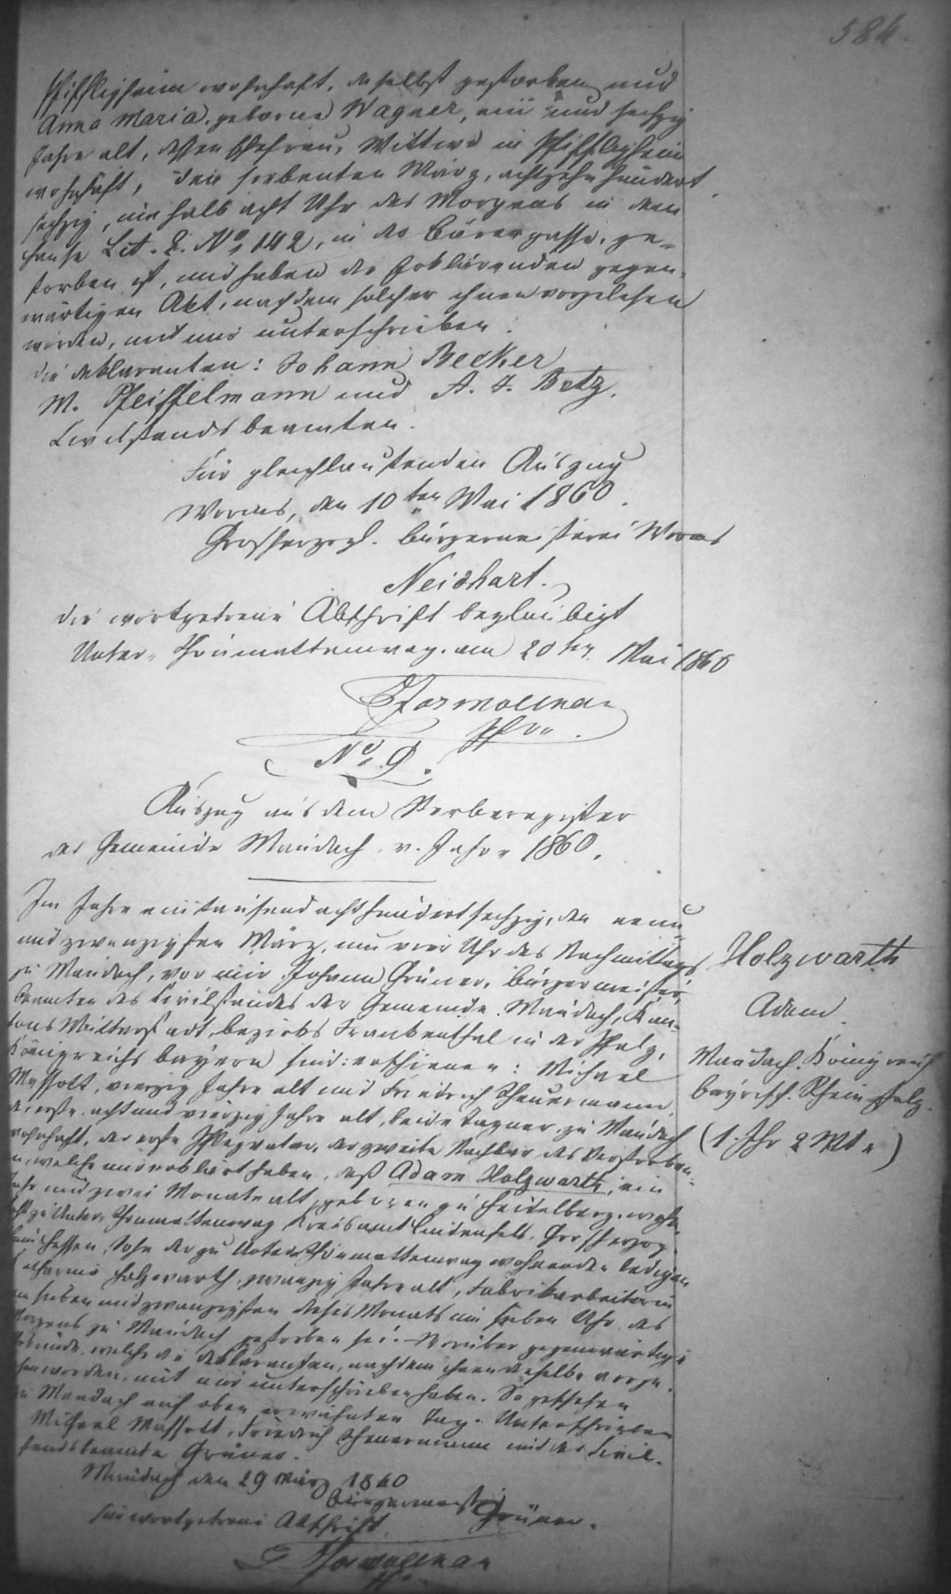 584.
Pfiffligheim wohnhaft, daselbst gestorben und
Anna Maria, geborne Wagner, ein und sechzig
Jahre alt, dessen Ehefrau, Wittwe in Pfiffligheim
wohnhaft, den siebenten März, achtzehnhundert
sechzig, um halb acht Uhr des Morgens in dem
Hause Lit. E. No 142, in der gasse, ge-
storben ist, und haben die Erklärenden gegen-
wärtigen Akt, nachdem solcher ihnen vorgelesen
worden, mit uns unterschrieben.
die deklaranten: Johann Becker
M. Pfeiffelmann und A. F. Betz,
Civilstandsbeamten.
Für gleichlautenden Auszug
Worms, den 10ten Mai 1860.
Grosherzogl. Bürgermeisterei Worms
Neidhart.
die wortgetreue Abschrift beglaubigt
Unter-Schönmattenwag, am 20ten Mai 1860
No 9.
Auszug aus dem Sterberegister
der Gemeinde Maudach v. Jahr 1860.
Im Jahre eintausend achthundert sechzig, den neun
und zwanzigsten März, um vier Uhr des Nachmittags
zu Maudach, vor mir Johann Grüner, Bürgermeister,
Beamten des Civilstandes der Gemeinde Maudach, Kan-
tons Mutterstadt, bezirks Frankenthal in der Pfalz,
Königreichs bayern sind erschienen: Michael
Massott, vierzig Jahre alt und Friedrich Scheuermann,
acht und vierzig Jahre alt, beide Tagner, zu Maudach
wohnhaft, der erste Pflegvater, der zweite Nachbar des Verstorben-
en, welche uns erklärt haben, daß Adam Holzwarth, ein
Jahr und zwei Monate alt, geboren zu Heidelberg, wohn-
haft zu Unter-Schönmattenwag Kreisamt Lindenfels, Grosherzog-
thum Hessen, Sohn der zu Unter-Schönmattenwag wohnenden ledigen
Holzwarth, zwanzig Jahre alt, Fabrikarbeiterin
am sieben und zwanzigsten dieses Monats um sieben Uhr des
Morgens zu Maudach gestorben sei. Worüber gegenwärtige
Urkunde, welche die deklaranten, nachdem ihnen dieselbe vorge-
lesen worden, mit uns unterschrieben haben. So geschehen
zu Maudach auf oben erwähnten Tag. Unterschrieben
Michael Massott, Friedrich Scheuermann und der Civil-
standsbeamte Grüner.
Maudach den 29 März 1860
Bürgermeister
Grüner.
Für wortgetreue Abschrift
Holzwarth
Adam.
Maudach. Königreich
bayrisch. Rhein Pfalz.
(1 Jhr 2 Mte)